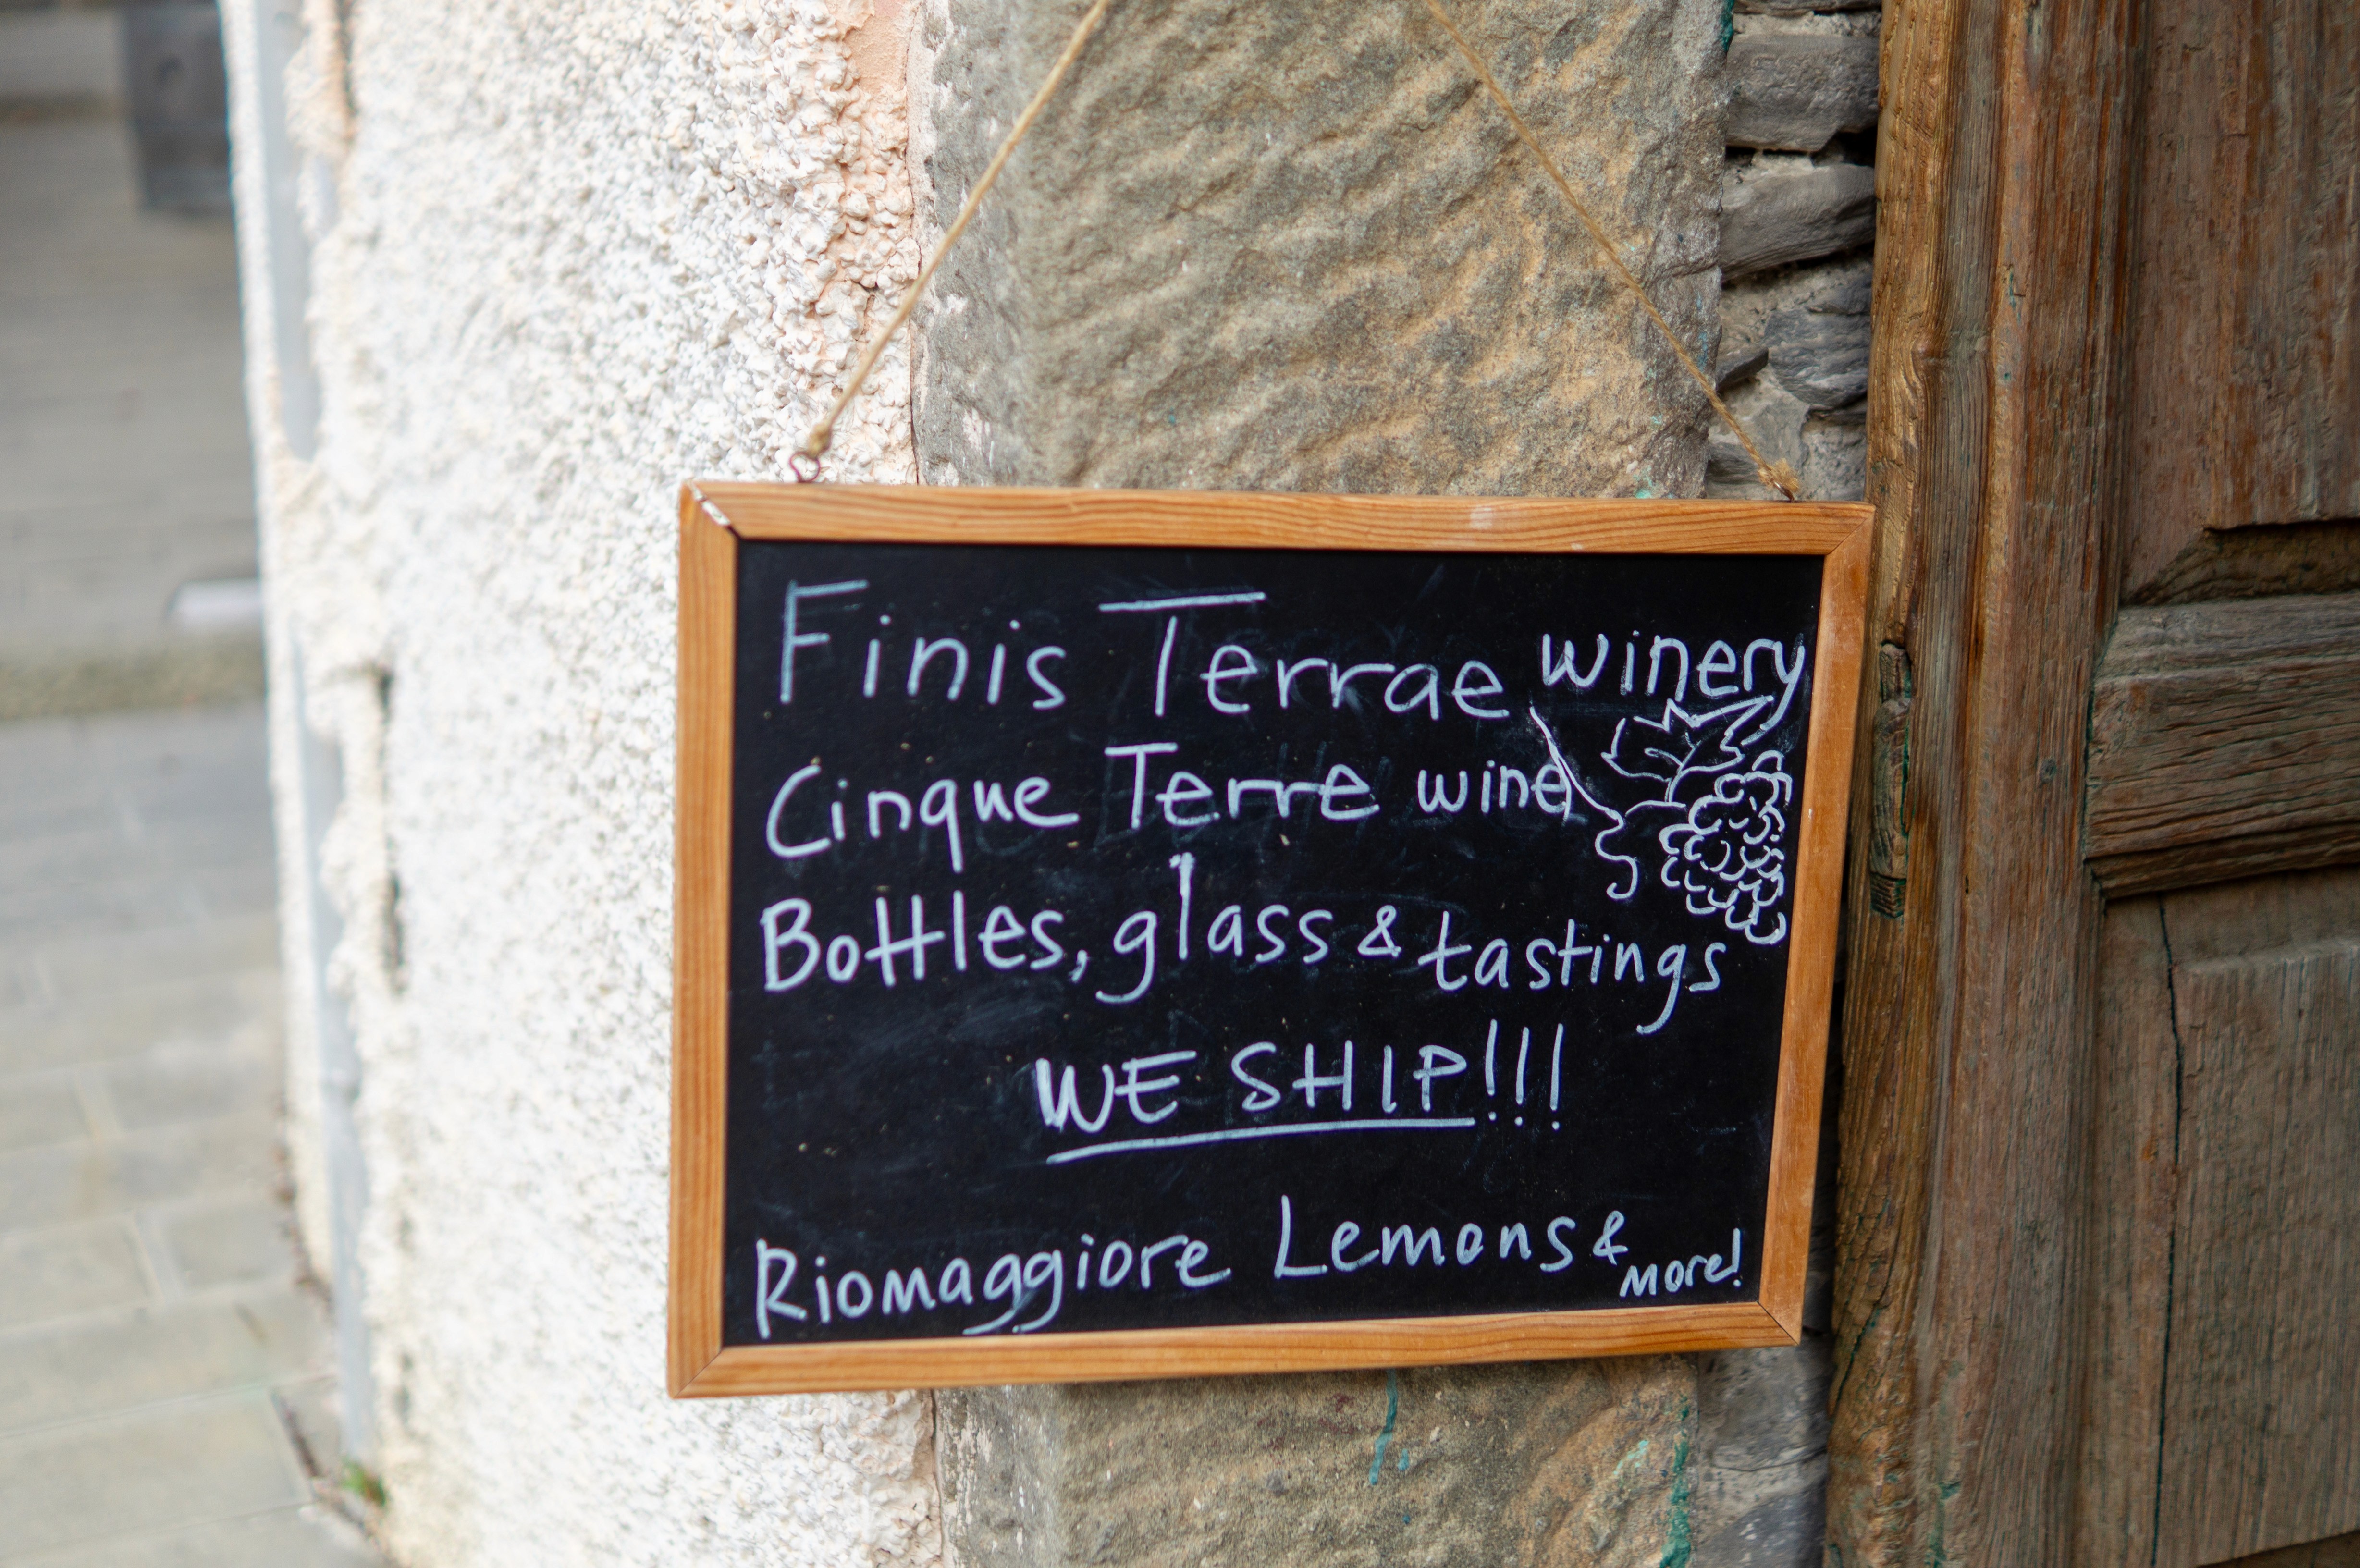 Finis Terrae winery
Cinque Terre wine
Bottles, glass & tastings
WE SHIP!!!
Riomaggiore Lemons & more!